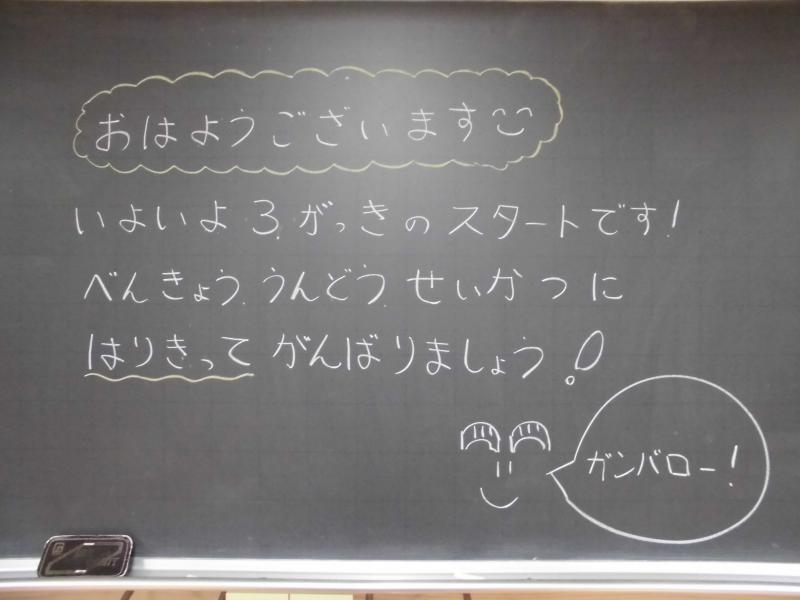 おはようございます
いよいよ3がっきのスタートです!
べんきょう、うんどう、せいかつに
はりきってがんばりましょう!
ガンバロー!